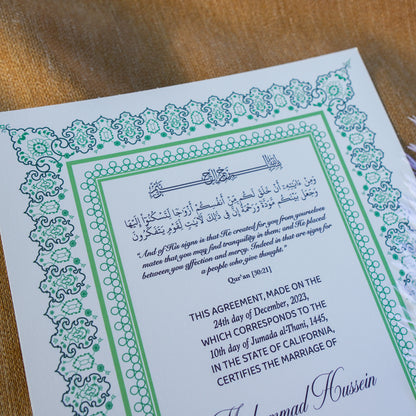 بسم الله الرحمن الرحيم
وَمِنْ ءَايَٰتِهِۦٓ أَنْ خَلَقَ لَكُم مِّنْ أَنفُسِكُمْ أَزْوَٰجًا لِّتَسْكُنُوٓا۟ إِلَيْهَا
وَجَعَلَ بَيْنَكُم مَّوَدَّةً وَرَحْمَةً إِنَّ فِى ذَٰلِكَ لَءَايَٰتٍ لِّقَوْمٍ يَتَفَكَّرُونَ
"And of His signs is that He created for you from yourselves
mates that you may find tranquility in them; and He placed
between you affection and mercy. Indeed in that are signs for
a people who give thought."
Qur'an [30:21]
THIS AGREEMENT, MADE ON THE
24th day of December, 2023,
WHICH CORRESPONDS TO THE
10th day of Jumada al-Thani, 1445,
IN THE STATE OF CALIFORNIA,
CERTIFIES THE MARRIAGE OF
Muhammad Hussein